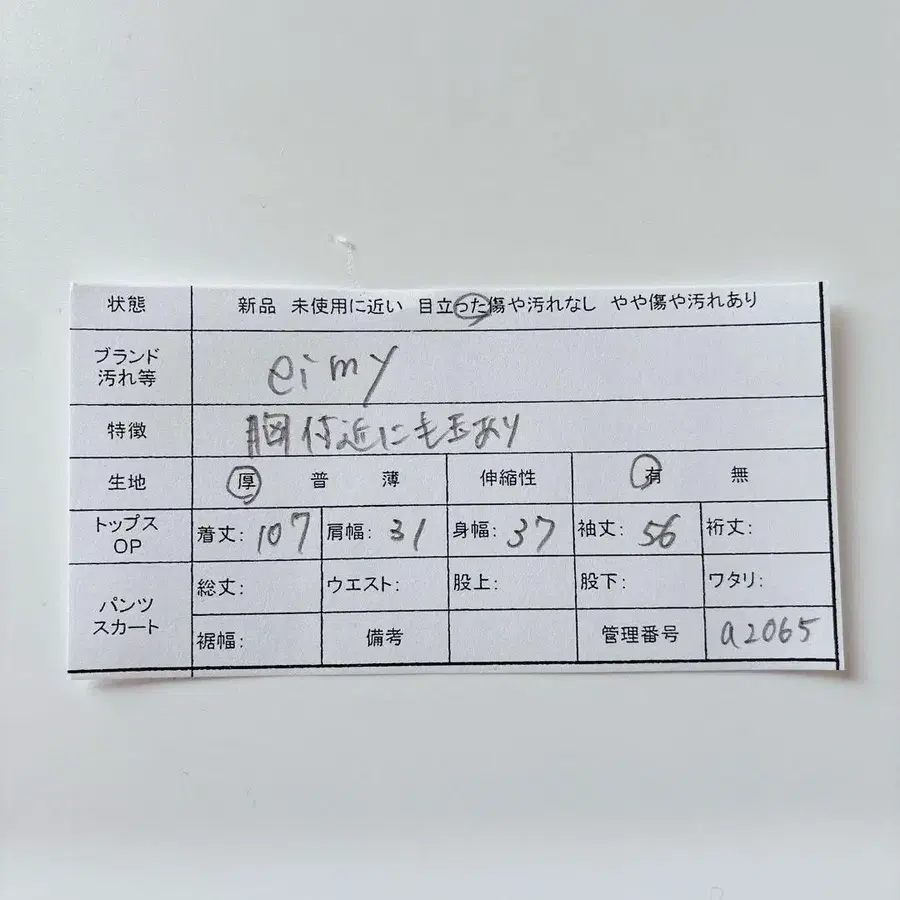 状態 新品 未使用に近い 目立った傷や汚れなし やや傷や汚れあり
ブランド
汚れ等
eimy
特徴 胸付近に毛玉あり
生地 厚 普 薄 伸縮性 有 無
トップス
OP
着丈: 107 肩幅: 31 身幅: 37 袖丈: 56 裄丈:
パンツ
スカート
総丈: ウエスト: 股上: 股下: ワタリ:
裾幅: 備考 管理番号 a2065